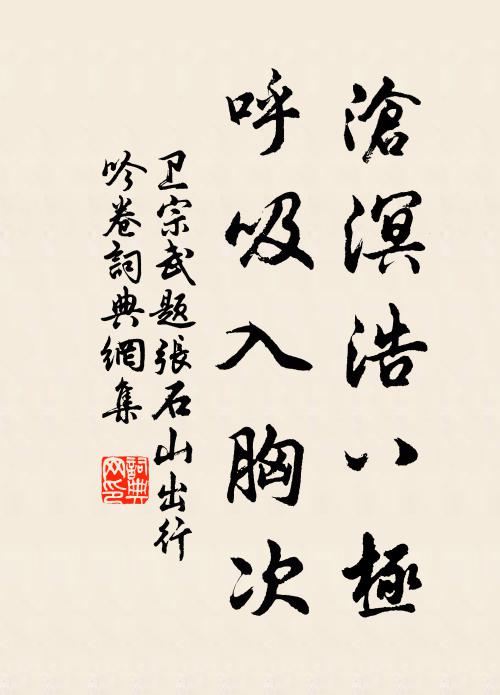 滄溟浩八極
呼吸入胸次
卫宗武题張石山出行
吟卷詞典網集
詞典网印